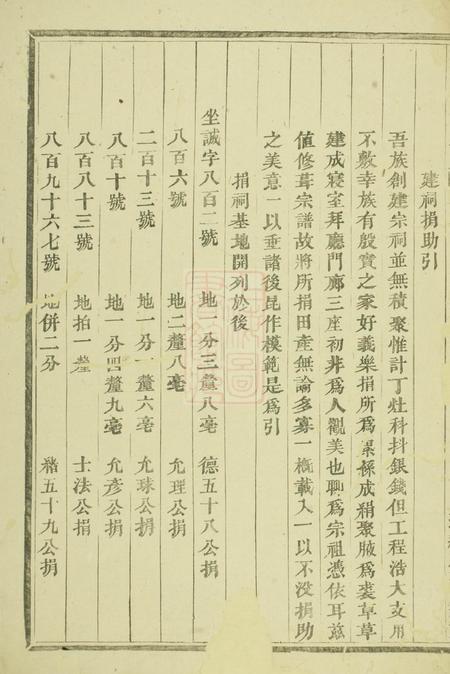 建祠捐助引
吾族創建宗祠並無積聚惟計丁灶科抖銀錢但工程浩大支用
不敷幸族有殷實之家好義樂捐所爲纍絲成絹聚腋爲裘草草
建成寢室拜廳門廊三座初非爲人觀美也聊爲宗祖憑依耳茲
値修葺宗譜故將所捐田產無論多寡一概載入一以不没捐助
之美意一以垂諸後昆作模範是爲引
捐祠基地開列於後
坐誠字八百二號 地一分三釐八毫 德五十八公捐
八百六號 地二釐八毫 允理公捐
二百十三號 地一分一釐六毫 允珠公捐
八百十號 地一分四釐九毫 允彥公捐
八百八十三號 地拍一釐 士法公捐
八百九十六七號 地併二分 稽五十九公捐